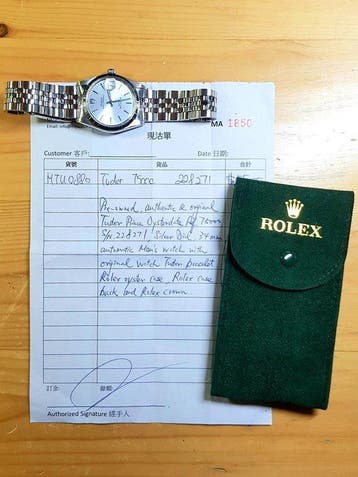 Email: info@
MA 1850
現沽單
Customer 客戶:
Date 日期:
貨號
貨品
MTU0880
Tudor 75000
228271
Pre-owned, authentic & original
Tudor Prince Oysterdate Ref 75000
S/n 228271 Silver Dial 34mm
automatic Men's watch with
original watch Tudor bracelet
Rolex oyster case, Rolex case
Back and Rolex crown
訂金:
餘額:
Authorized Signature 經手人
ROLEX